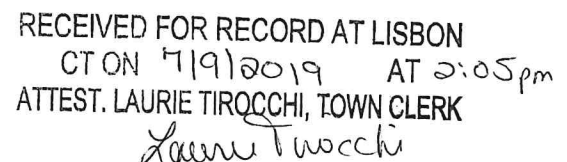 RECEIVED FOR RECORD AT LISBON
CT ON 7/9/2019 AT 2:05pm
ATTEST. LAURIE TIROCCHI, TOWN CLERK
Laurie Tirocchi